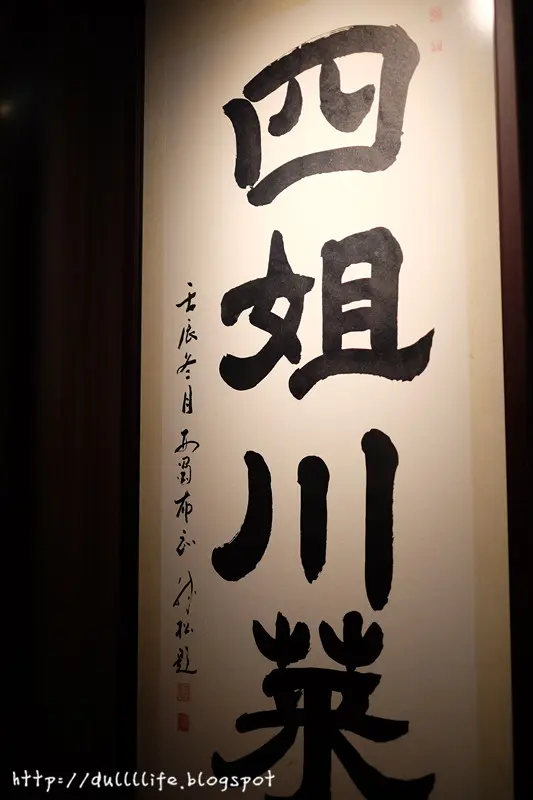 四姐川菜
壬辰冬月西蜀布衣 松題
http://dullllife.blogspot